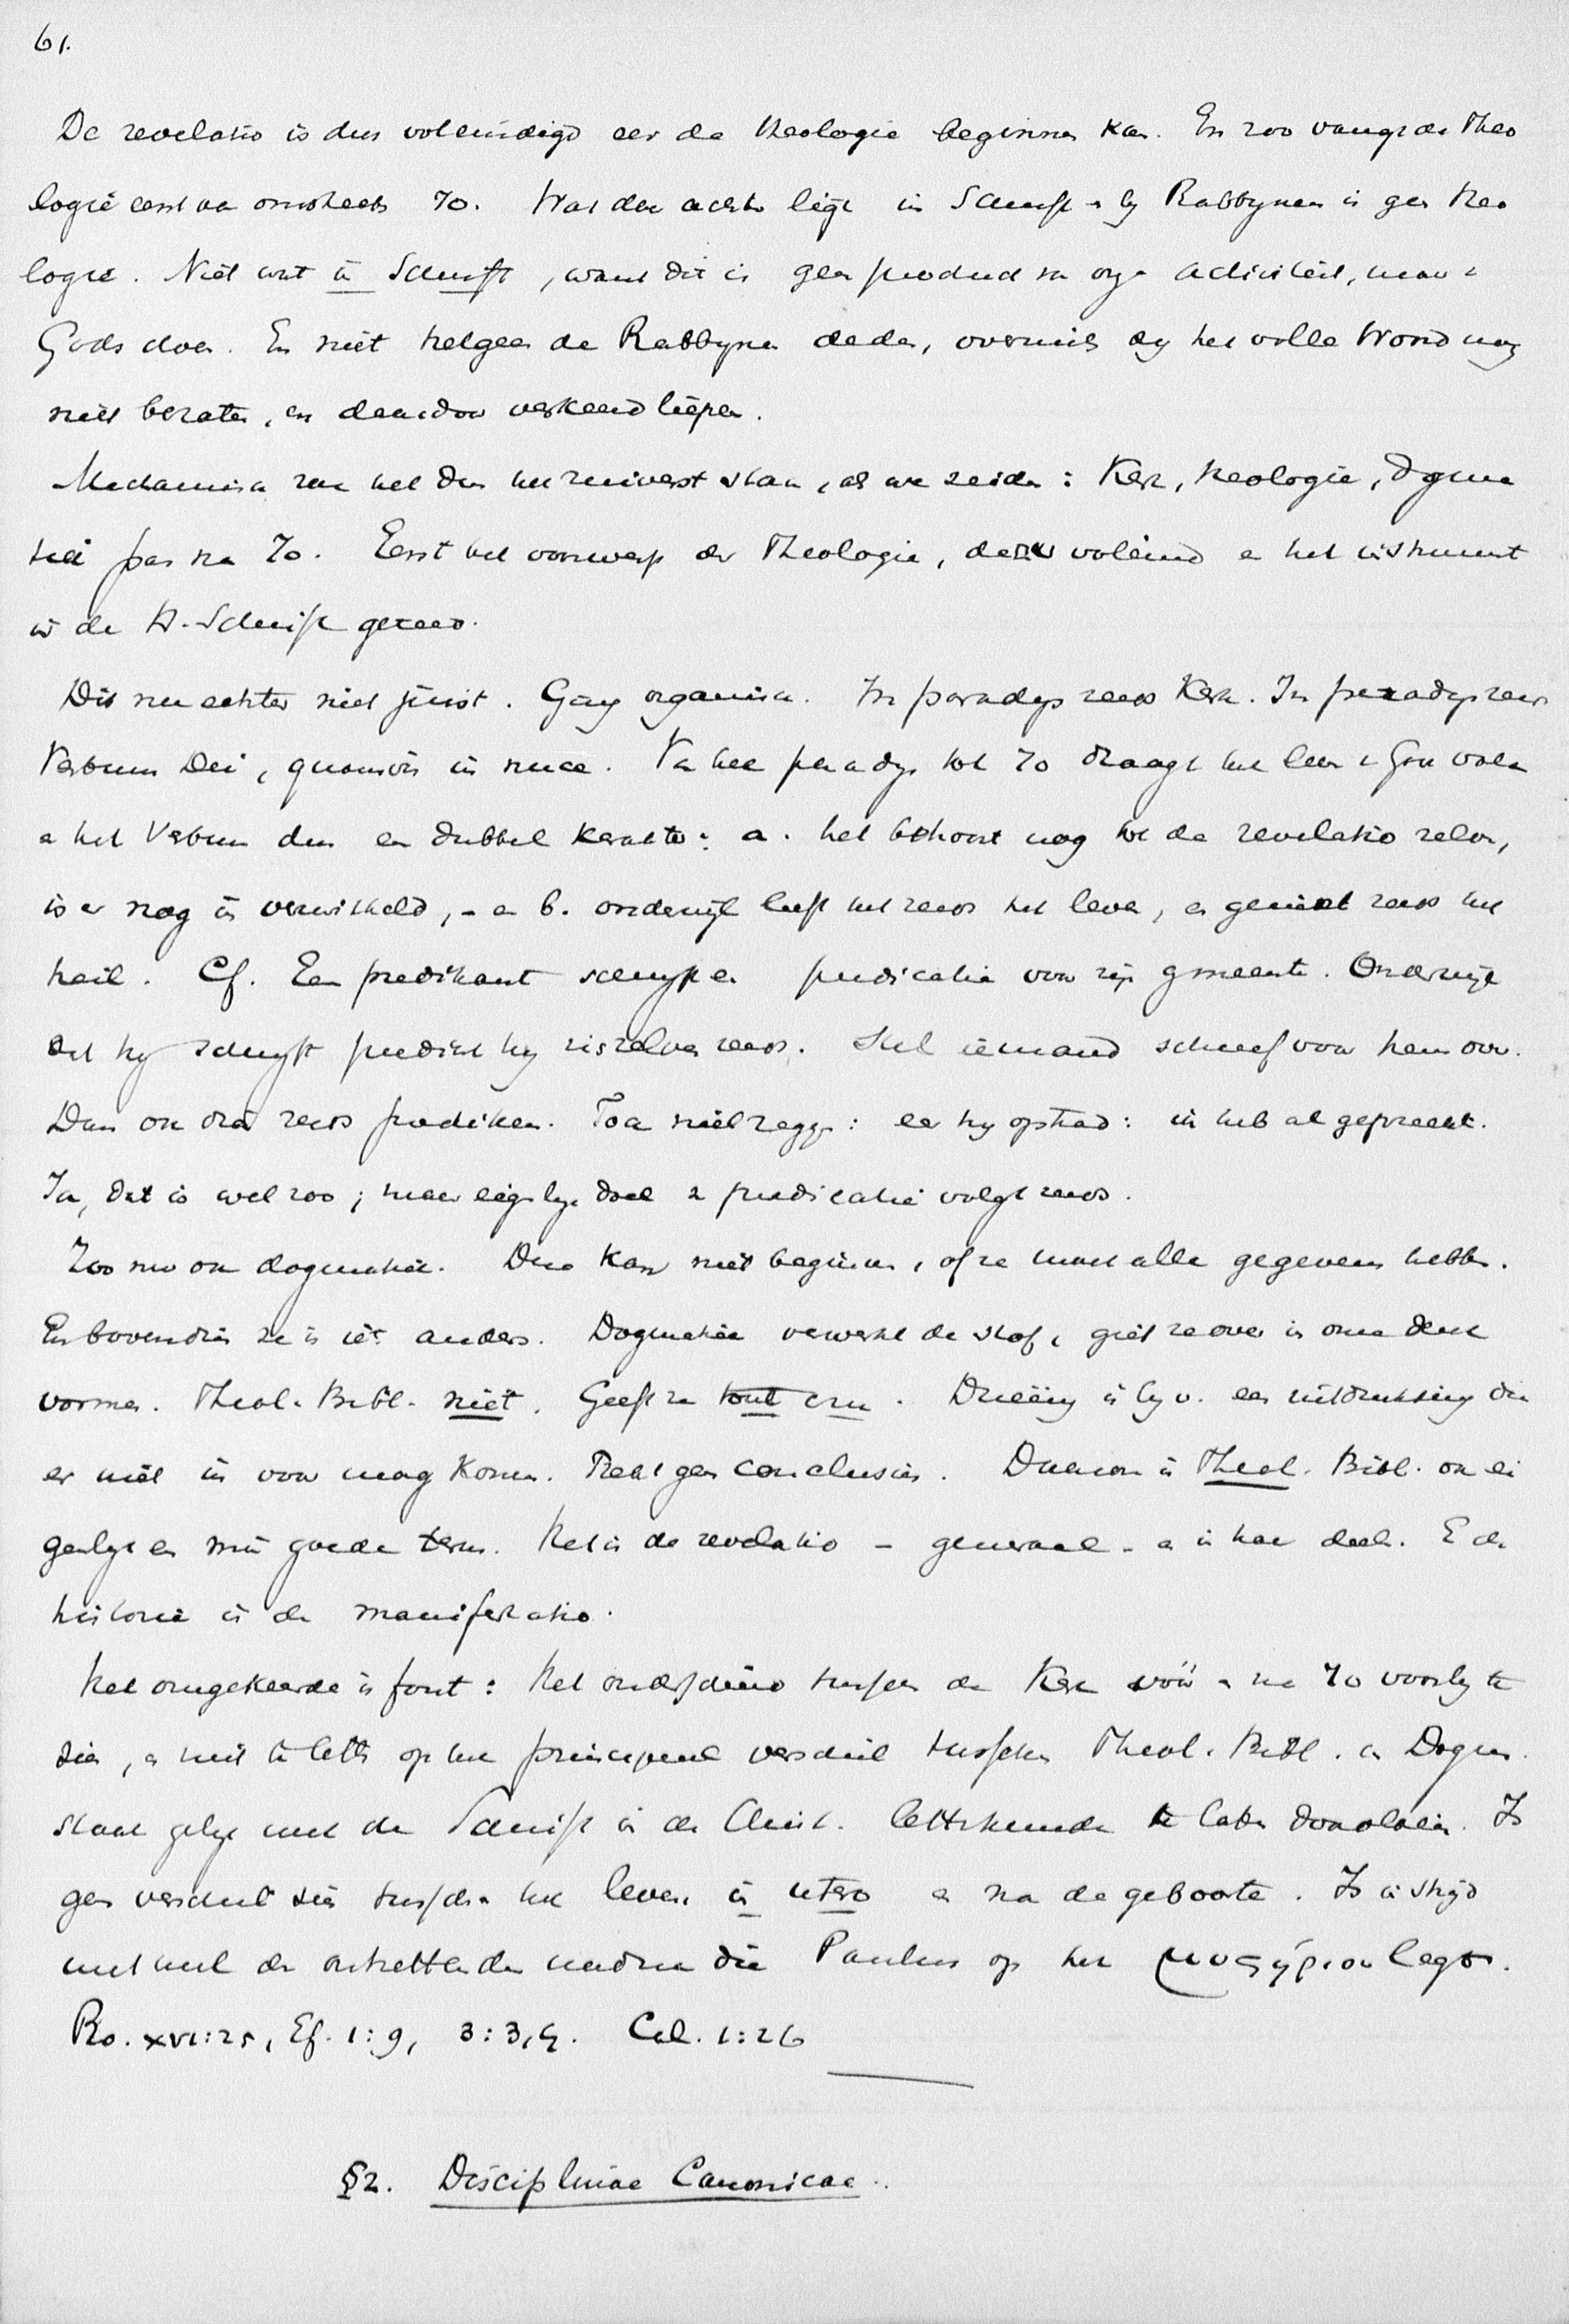 61.
De revelatio is dus voleindigd eer de theologie beginnen kan. En zoo vangt de Theo
logie eerst aan omstreeks 70. Wat daar achter ligt in Schrift & by Rabbynen is geen theo
logie. Niet wat in Schrift, want dit is geen product van onze activiteit, maar v
Gods doen. En niet hetgeen de Rabbynen deden, overmits zy het volle Woord nog
niet bezaten, en daardoor verkeerd liepen.
Mechanisch zou het dus het zuiverst staan, als we zeiden: Kerk, theologie, Dogma
tiek pas na 70. Eerst het voorwerp der Theologie, voleind en het instrument
in de H. Schrift gereed.
Dit nu echter niet juist. Ging organisch. In paradys reeds Kerk. In paradys reeds
Verbum Dei, quamvis in nuce. Van het paradys tot 70 draagt het leven v Gods volk
en het Verbum dus een dubbel karakter: a. het behoort nog tot de revelatio zelve,
is er nog in verwikkeld, - en b. onderwijl leeft het reeds het leven, en geniet reeds het
heil. Cf. Een predikant schryft een predicatie voor zyn gemeente. Onderwyl
dat hy schryft predikt hy zichzelven reeds. Stel iemand schreef voor hem over.
Dan ook dien reeds prediken. Toch niet zeggen: eer hy optrad: ik heb al gepreekt.
Ja, dat is wel zoo; maar eigenlyk doel v predicatie volgt reeds.
Zoo nu ook dogmatiek. Deze kan niet beginnen, of ze moet alle gegevens hebben.
En bovendien ze is iets anders. Dogmatiek verwerkt de stof, giet ze over in onze denk
vormen. Theol. Bibl. niet. Geeft ze tout cru. Drieëenig is by v. een uitdrukking die
er niet in voor mag komen. Trekt geen conclusies. Daarom is Theol. Bibl. ook ei
genlyk en min goede term. Het is de revelatio - generaal - en in haar deelen. En de
historie is de manifestatio.
Het omgekeerde is fout: Het onderscheid tusschen de Kerk vóór & na 70 voorby te
zien, en niet te letten op het principieel verschil tusschen Theol. Bibl. en Dogm.
staat gelyk met de Schrift in de Christ. letterkunde te laten doorloopen. Is
geen verschil zien tusschen het leven in utero en na de geboorte. Is in stryd
met de ontzettenden nadruk die Paulus op het μυστήριον legt.
Ro. XVI:25, Ef. 1:9, 3:3,9. Col. 1:26
§2. Disciplinae Canonicae.